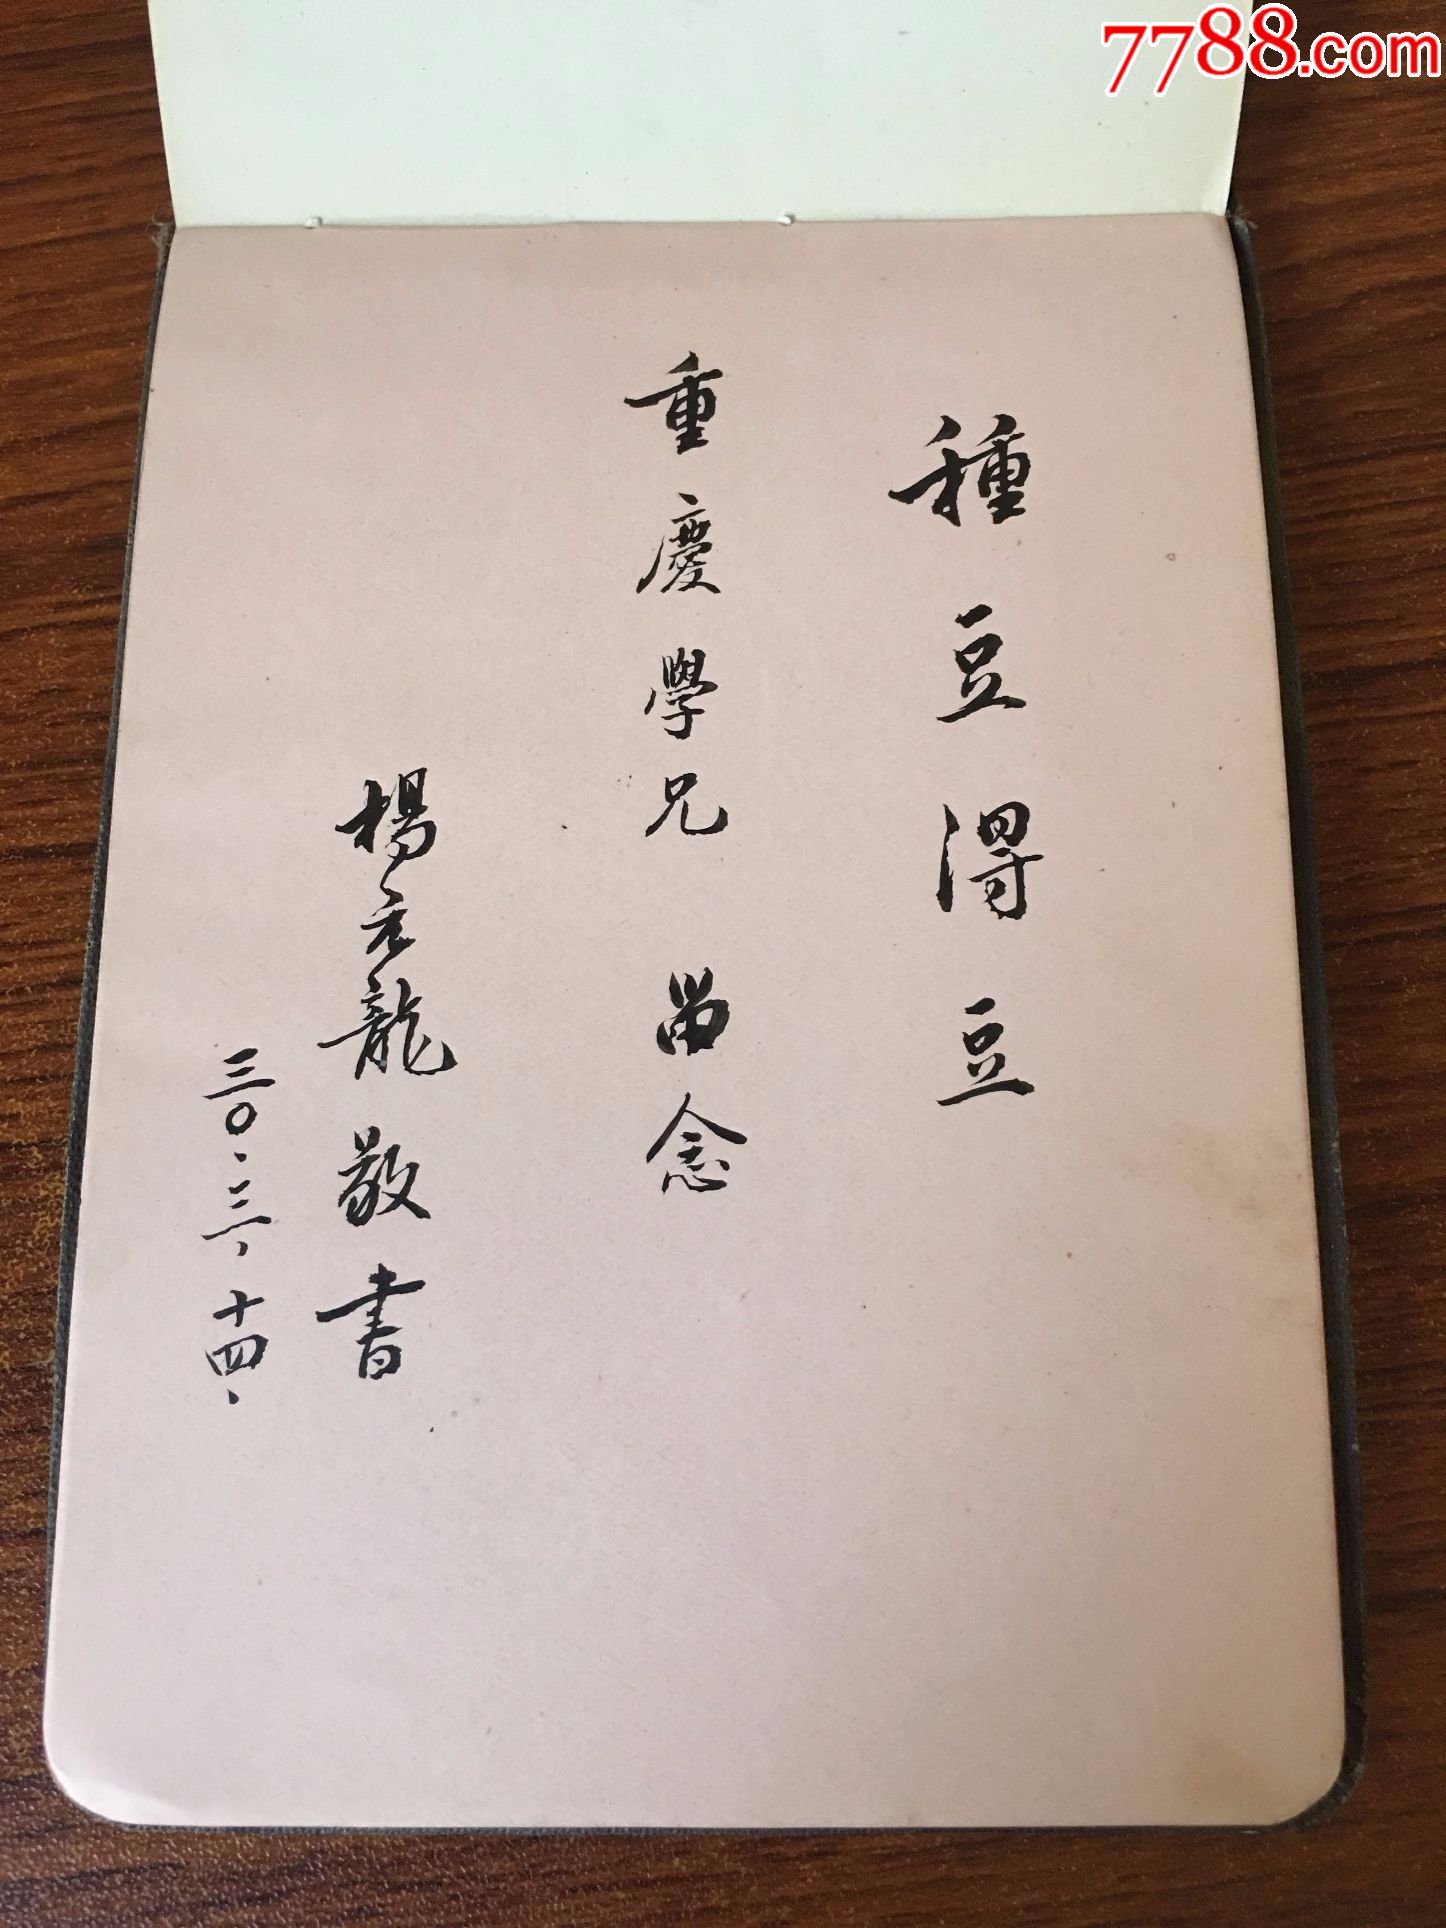 7788.com
種豆得豆
重慶學兄 畱念
楊元龍敬書
三〇.三.十四.